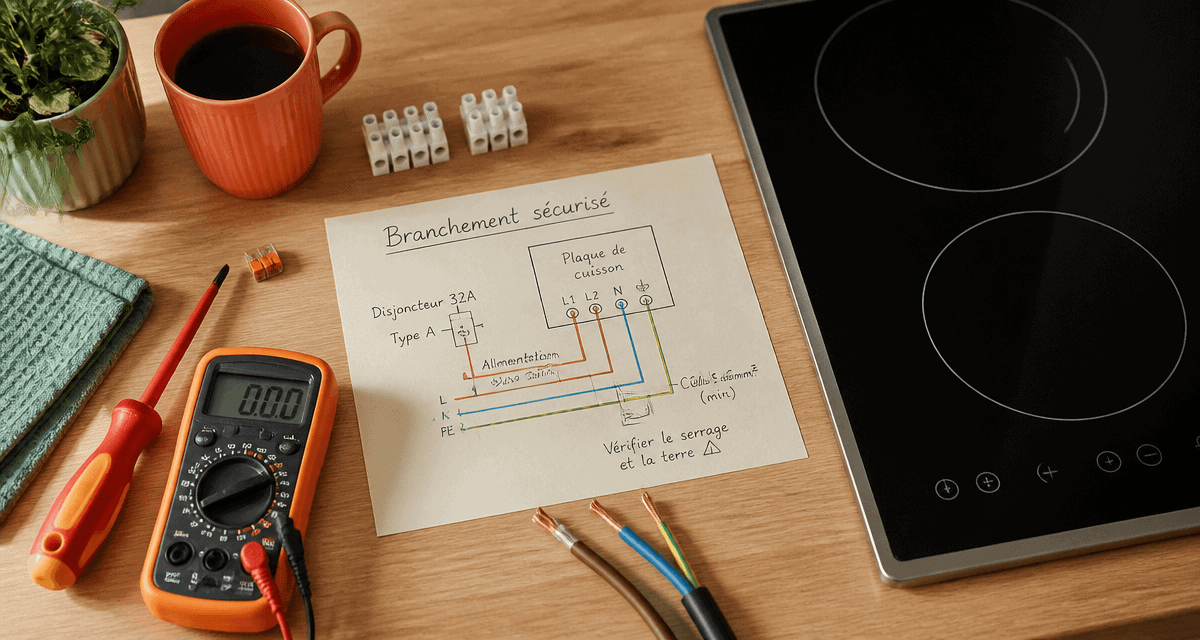 Branchement sécurisé
Plaque de
cuisson
L1 L2 N
Disjoncteur 32A
Type A
Alimentation
L
N
PE
(min)
Vérifier le serrage
et la terre ⚠
0.0.0